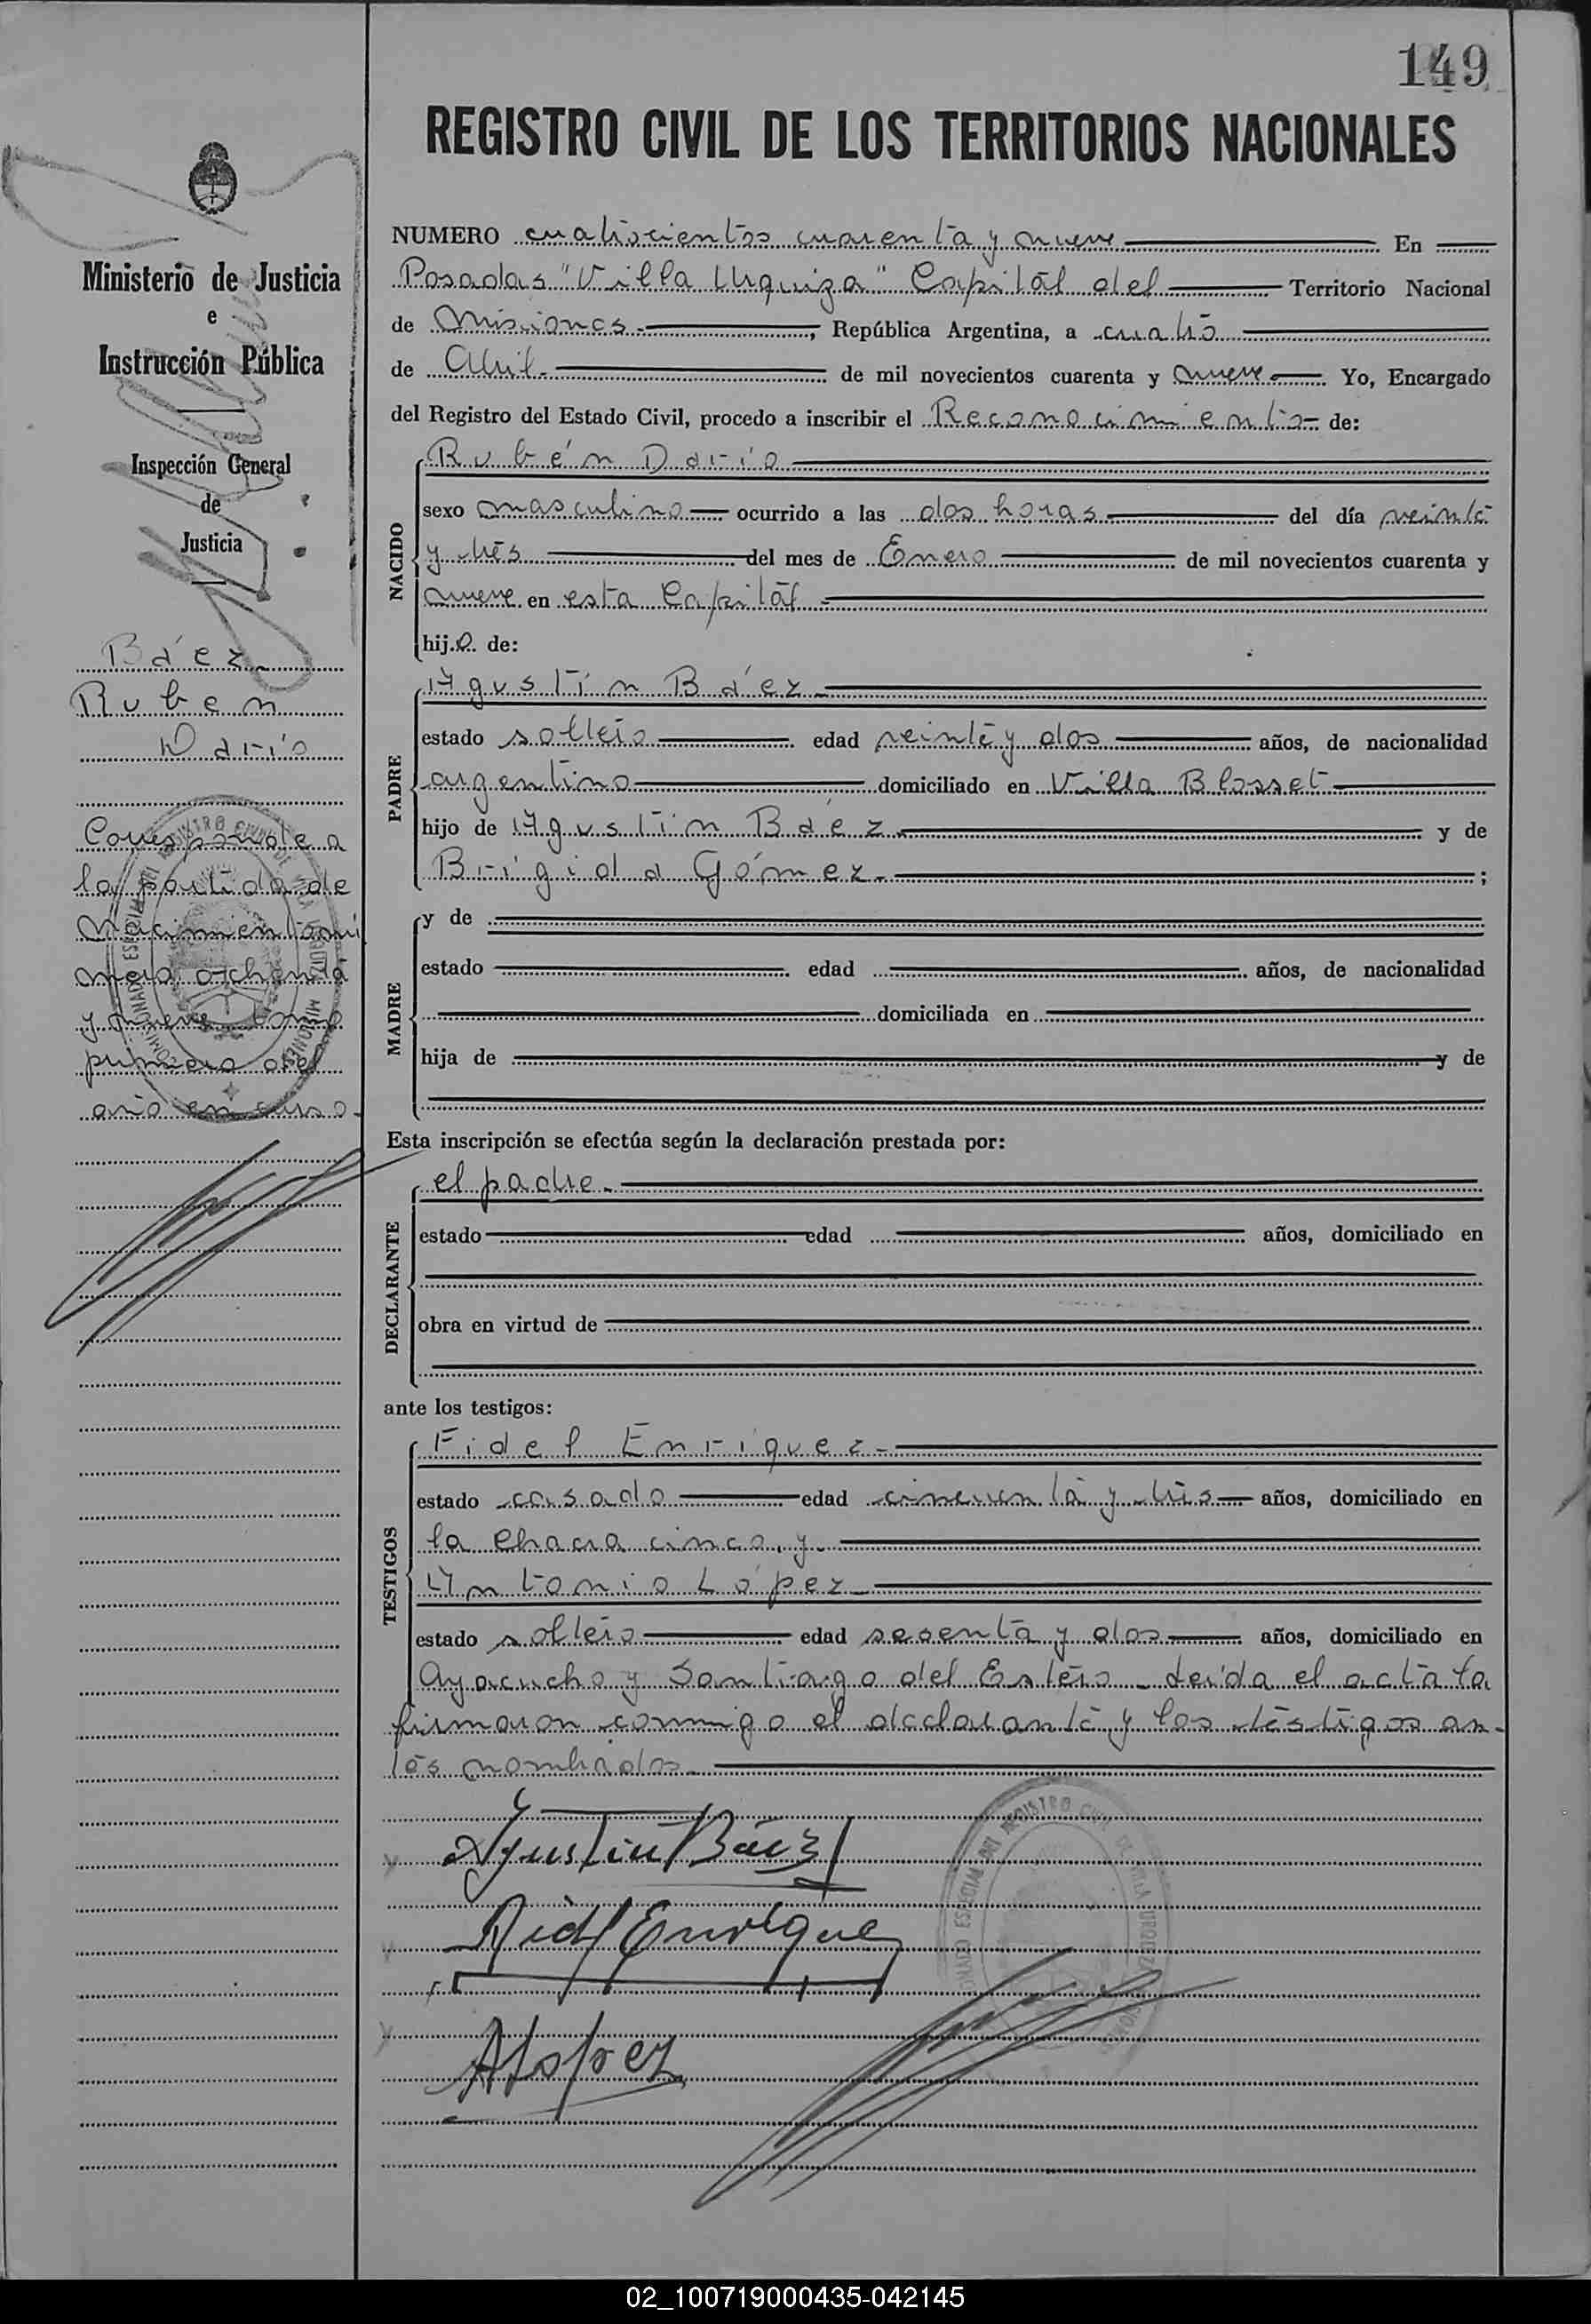 149
REGISTRO CIVIL DE LOS TERRITORIOS NACIONALES
NUMERO cuatrocientos cuarenta y nueve En
Posadas "Villa Urquiza" Capital del Territorio Nacional
de Misiones, República Argentina, a cuatro
de Abril. de mil novecientos cuarenta y nueve Yo, Encargado
del Registro del Estado Civil, procedo a inscribir el Reconocimiento de:
NACIDO
Rubén Darío
sexo masculino ocurrido a las dos horas del día veinte
y tres del mes de Enero de mil novecientos cuarenta y
nueve en esta Capital
hijo de:
PADRE
Agustín Báez
estado soltero edad veinte y dos años, de nacionalidad
argentino domiciliado en Villa Blosset
hijo de Agustín Báez y de
Brígida Gómez ;
MADRE
y de
estado edad años, de nacionalidad
domiciliada en
hija de y de
Esta inscripción se efectúa según la declaración prestada por:
DECLARANTE
el padre.
estado edad años, domiciliado en
obra en virtud de
ante los testigos:
TESTIGOS
Fidel Enríquez
estado casado edad cincuenta y tres años, domiciliado en
la chacra cinco, y
Antonio López
estado soltero edad sesenta y dos años, domiciliado en
Ayacucho y Santiago del Estero. Leída el acta la
firmaron conmigo el declarante y los testigos an-
tes nombrados.
Agustin Báez
Fidel Enriquez
A Lopez
Ministerio de Justicia
e
Instrucción Pública
Inspección General
de
Justicia
Báez
Ruben
Darío
Corresponde a
la partida de
nacimiento nú
mero ochenta
y nueve tomo
primero del
año en curso.
02_100719000435-042145